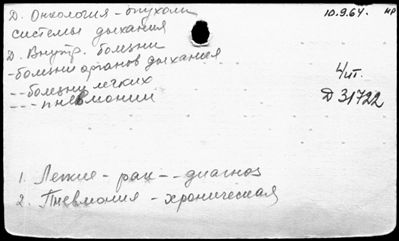 Д. Онкология - опухоли
системы дыхания
Д. Внутр. болезни
- болезни органов дыхания
-- болезни легких
--- пневмонии
10.9.64. нр
4/ит.
Д 31722
1. Легкие - рак -- диагноз
2. Пневмония - хроническая